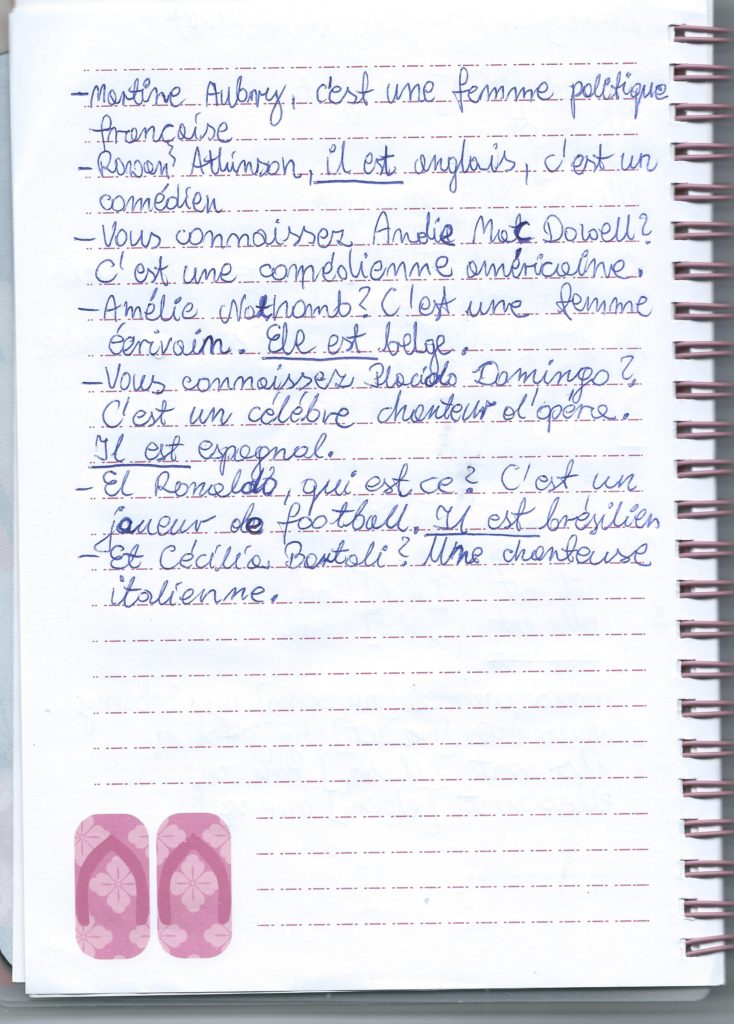 - Martine Aubry, c'est une femme politique
française
- Rowan? Athinson, il est anglais, c'est un
comédien
- Vous connaissez Andie Mac Dowell?
C'est une comédienne américaine.
- Amélie Nothomb? C'est une femme
écrivain. Elle est belge.
- Vous connaissez Placido Domingo?
C'est un célébre chanteur d'opéra.
Il est espagnol.
- Et Ronaldo, qui est ce? C'est un
joueur de football. Il est brésilien
- Et Cécilia Bartoli? Une chanteuse
italienne.